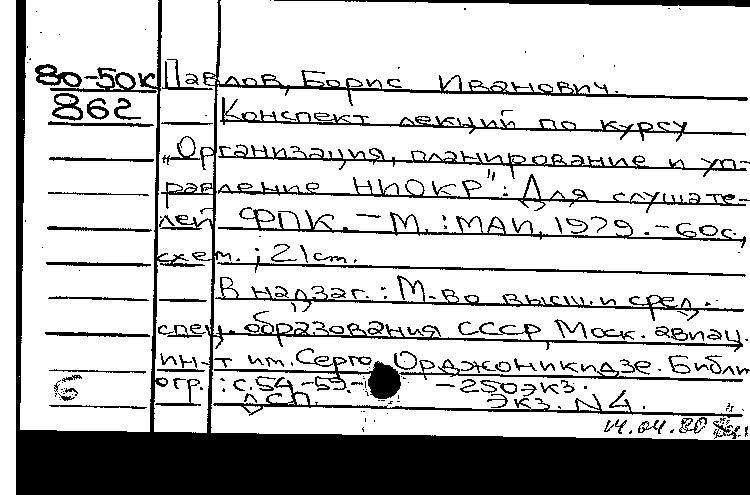 80-50к Павлов, Борис Иванович.
862 Конспект лекций по курсу
„Организация, планирование и уп-
равление НИОКР": Для слушате-
лей ФПК. – М.: МАИ, 1979. – 60с.,
схем.; 21см.
В надзаг.: М-во высш. и сред.
спец. образования СССР, Моск. авиац.
ин-т им. Серго Орджоникидзе. Библи
6 огр.: с.54-59. – 250экз.
ДСП. Экз. N4.
14.04.80